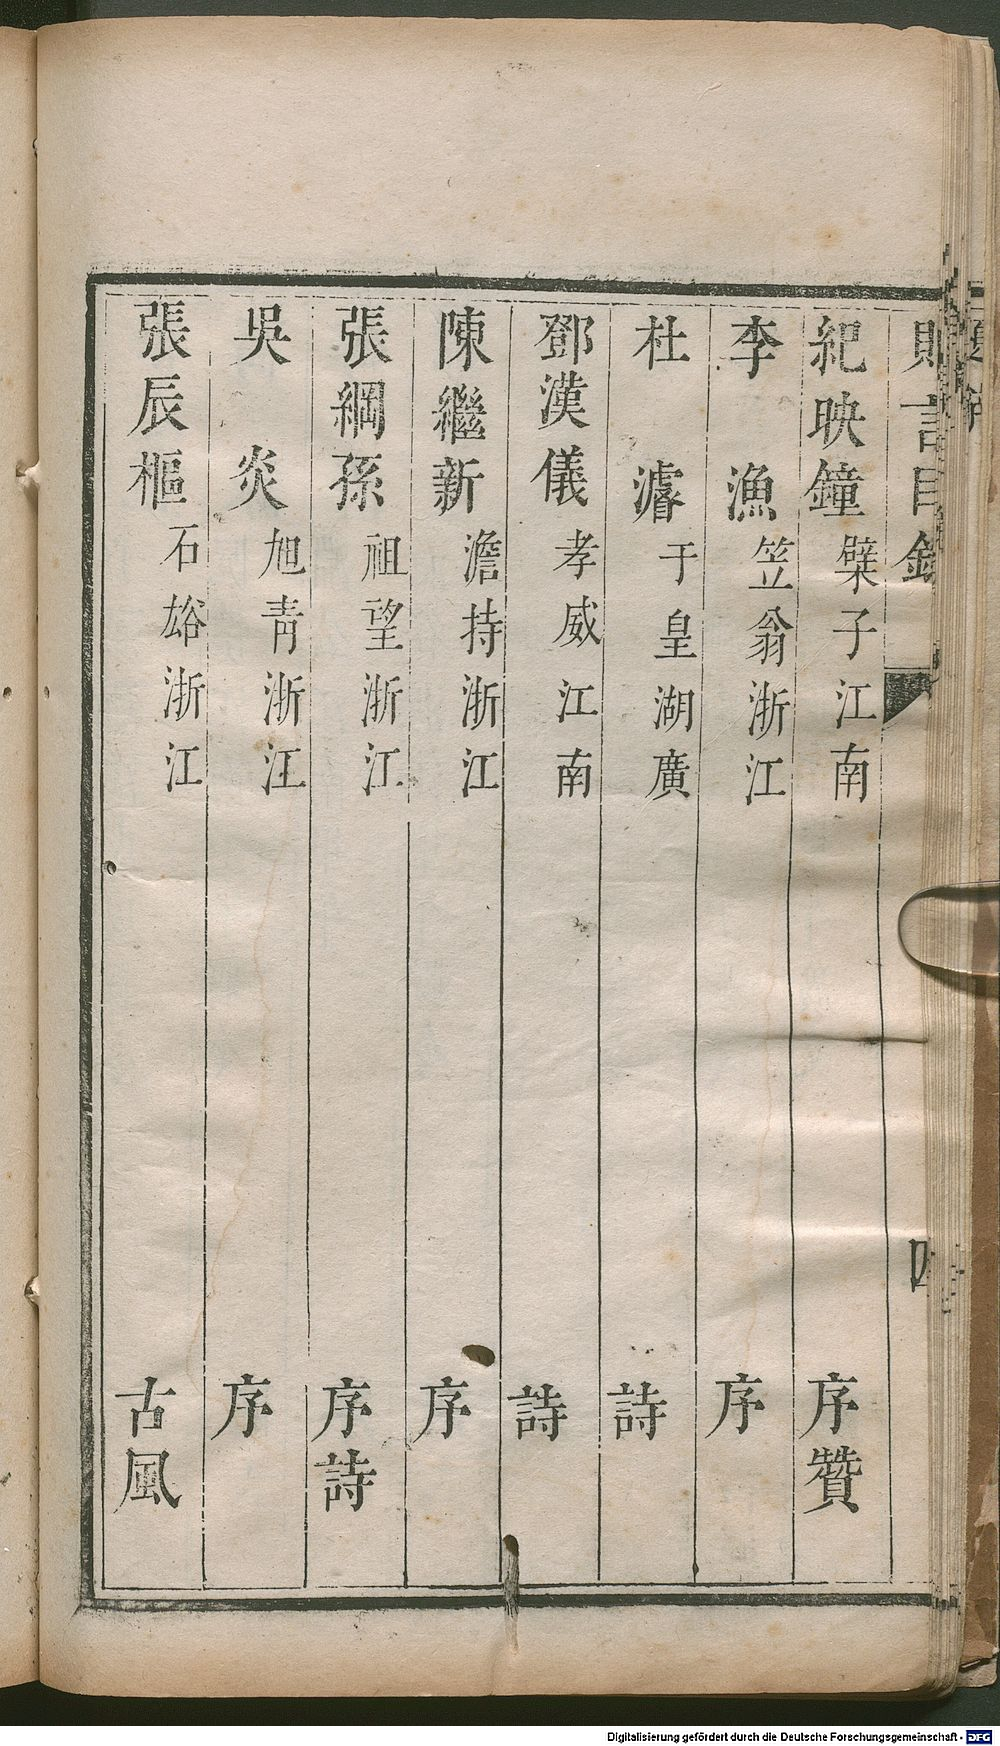 言目錄
四
紀映鐘 檗子江南 序贊
李漁 笠翁浙江 序
杜濬 于皇湖廣 詩
鄧漢儀 孝威江南 詩
陳繼新 澹持浙江 序
張綱孫 祖望浙江 序詩
吳炎 旭青浙江 序
張辰樞 石谽浙江 古風
Digitalisierung gefördert durch die Deutsche Forschungsgemeinschaft - DFG